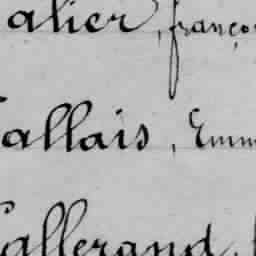 alier, franço
allais, Emm
allerand,